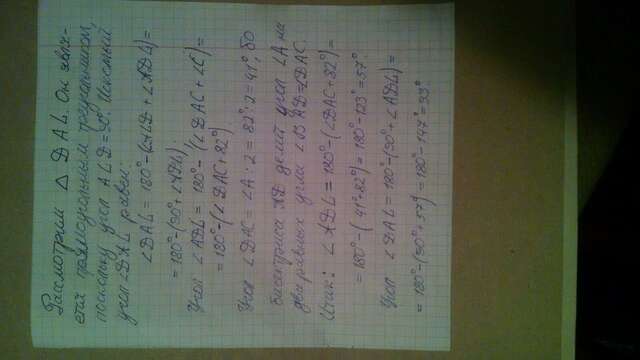 Рассмотрим △ DAL. Он явля-
ется прямоугольным треугольником,
поскольку угол ALD = 90°. Искомый
угол DAL равен:
∠DAL = 180° - (∠ALD + ∠ADL) =
= 180° - (90° + ∠ADL)
Угол ∠ADL = 180° - (∠DAC + ∠C) =
= 180° - (∠DAC + 82°)
Угол ∠DAC = ∠A : 2 = 82° : 2 = 41°, ибо
биссектриса AD делит угол ∠A на
два равных угла ∠BAD = ∠DAC.
Итак: ∠ADL = 180° - (∠DAC + 82°) =
= 180° - (41° + 82°) = 180° - 123° = 57°.
Угол ∠DAL = 180° - (90° + ∠ADL) =
= 180° - (90° + 57°) = 180° - 147° = 33°.